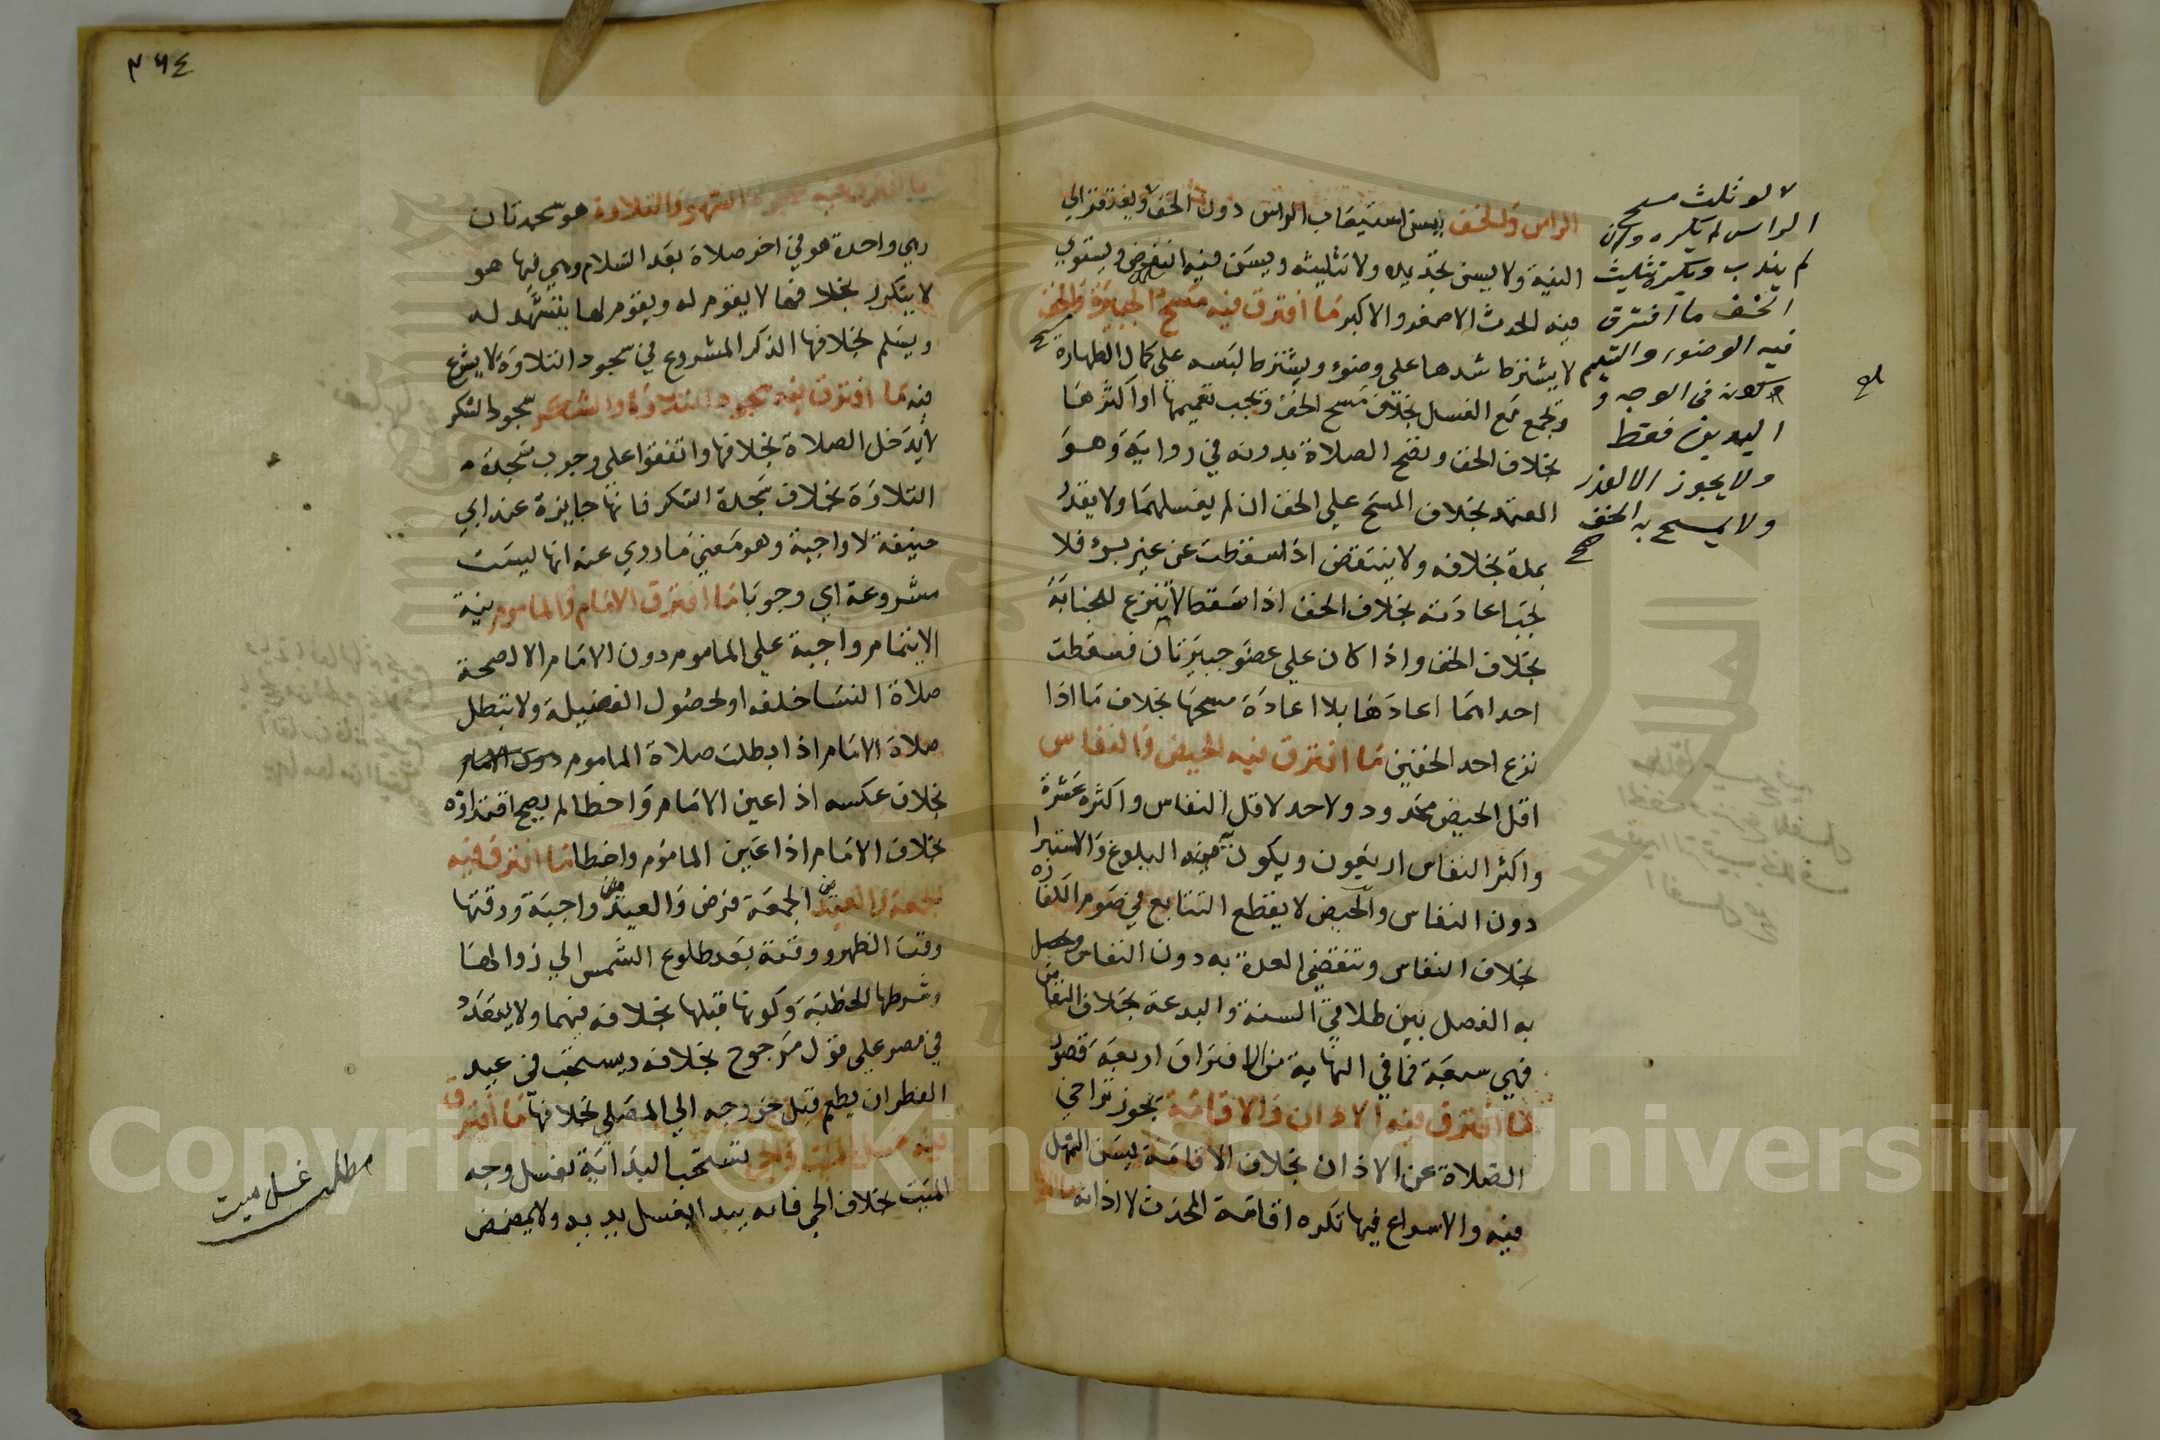 الراس والخف يسن استيعاب الراس دون الخف ولا يفتقر الي
النية ولا يسن تجديده ولا تثليثه ويسن فيه التفريض ويستوي
فيه الحدث الاصغر والاكبر ما افترق فيه مسح الجبيرة والخف
لا يشترط شدها على وضوء ويشترط لبسه على كمال الطهارة
وتجمع مع الغسل بخلاف مسح الخف ويجب تعميمها او اكثرها
بخلاف الخف وتصح الصلاة بدونه في رواية وهو
المعتمد بخلاف المسح علي الخف ان لم يغسلهما ولا يقدر
بمدة بخلافه ولا ينتقض اذا سقطت عن غير برء فلا
تجب اعادته بخلاف الخف اذا سقط لا تنزع للجنابة
بخلاف الخف واذا كان علي عضو جبيرتان فسقطت
احداهما اعادها بلا اعادة مسحها بخلاف ما اذا
نزع احد الخفين ما افترق فيه الحيض والنفاس
اقل الحيض محدود ولا حد لاقل النفاس واكثره عشرة
واكثر النفاس اربعون ويكون به البلوغ والاستبرا
دون النفاس والحيض لا يقطع التتابع في صوم الكفارة
بخلاف النفاس وتنقضي العدة به دون النفاس ويحصل
به الفصل بين طلاقي السنة والبدعة بخلاف النفاس
فهي سبعة فما في النهاية من الافتراق اربعة قصور
ما افترق فيه الاذان والاقامة يجوز تراخي
الصلاة عن الاذان بخلاف الاقامة يسن التمهل
فيه والاسراع فيها تكره اقامة المحدث لا اذانه
لا لو ثلث مسح
الراس لم يكره وان
لم يندب ويكره تثليث
الخف ما افترق
فيه الوضوء والتيمم
يكون في الوجه و
اليدين فقط
ولا يجوز الا لعذر
ولا يمسح به الخف
صح
٣٦٤
ما افترق فيه سجود السهو والتلاوة هو سجدتان
وهي واحدة هو في اخر صلاة بعد السلام وهي فيها هو
لا يتكرر بخلافها لا يقوم له ويقوم لها يتشهد له
ويسلم بخلافها الذكر المشروع في سجود التلاوة لا يشرع
فيه ما افترق فيه سجود التلاوة والشكر سجود الشكر
لا يدخل الصلاة بخلافها واتفقوا على وجوب سجدة
التلاوة بخلاف سجدة الشكر فانها جايزة عند ابي
حنيفة لا واجبة وهو معني ما روي عنه انها ليست
مشروعة اي وجوبا ما افترق الامام والماموم نية
الايتمام واجبة علي الماموم دون الامام الا لصحة
صلاة النسا خلفه او لحصول الفضيلة ولا تبطل
صلاة الامام اذا بطلت صلاة الماموم دون الامام
بخلاف عكسه اذا عين الامام واخطا لم يصح اقتداؤه
بخلاف الامام اذا عين الماموم واخطا ما افترق فيه
الجمعة والعيد الجمعة فرض والعيد واجبة ووقتها
وقت الظهر ووقته بعد طلوع الشمس الي زوالها
وشرطها الخطبة وكونها قبلها بخلافه فيهما ولا يتعدد
في مصر علي قول مرجوح بخلافه ويستحب في عيد
الفطر ان يطعم قبل خروجه الي المصلي بخلافها ما افترق
فيه غسل الميت والحي تستحب البداية بغسل وجه
الميت بخلاف الحي فانه يبدا بغسل يديه ولا يمضمض
مطلب غسل ميت
Copyright © King Saud University